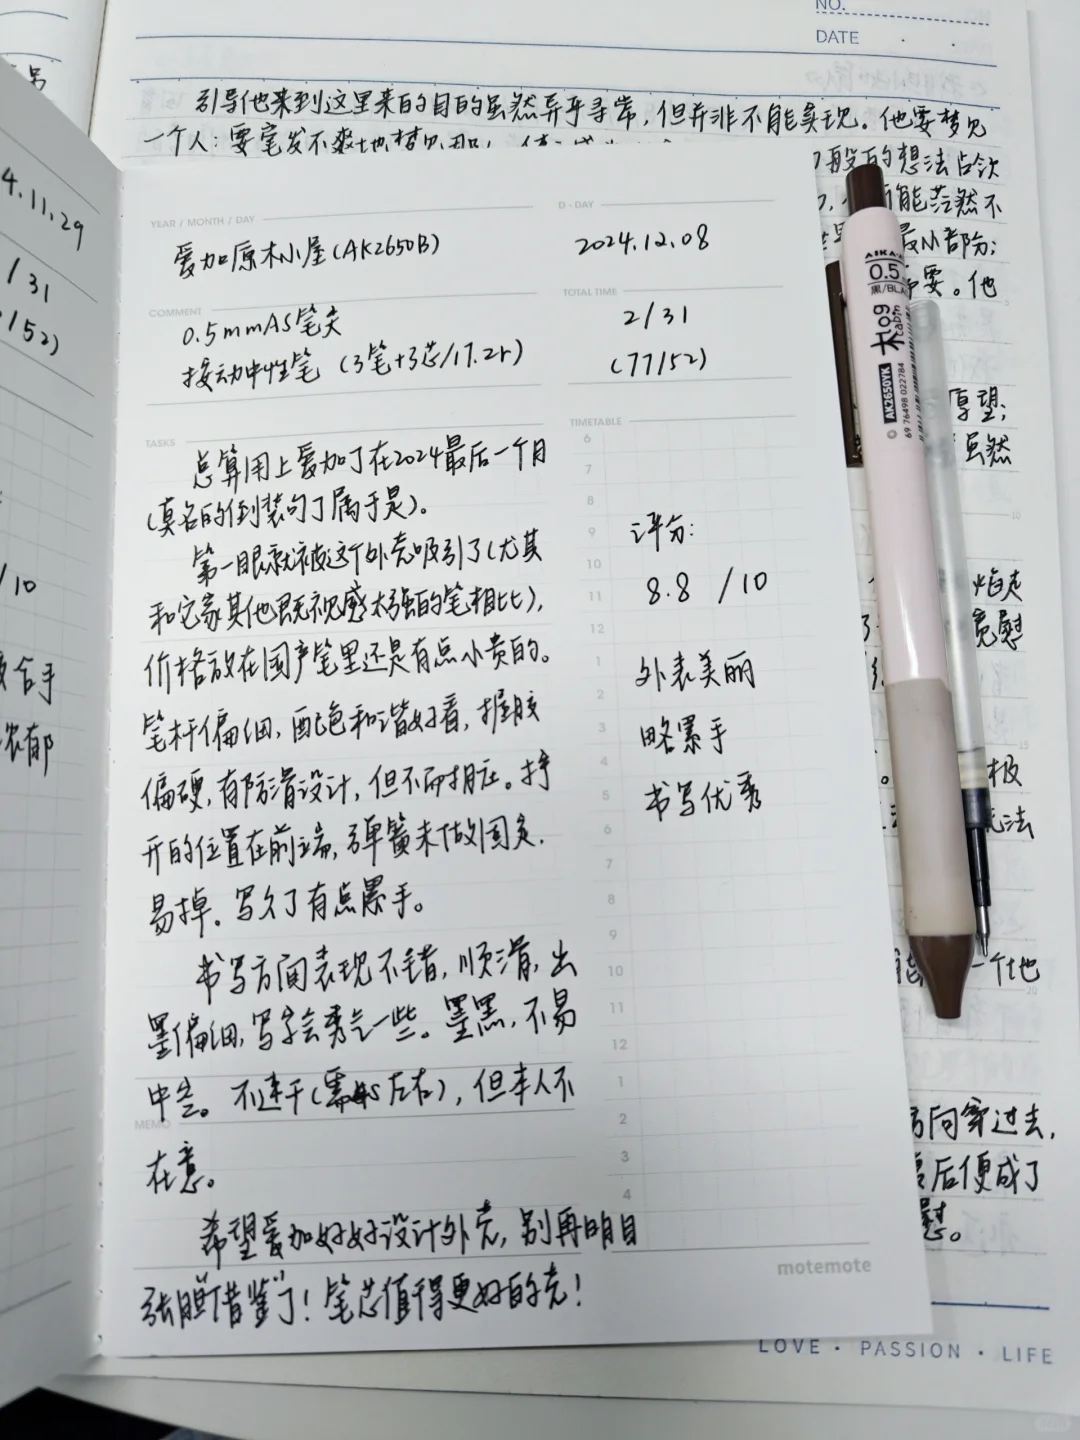 NO.
DATE
引导他来到这里来的目的虽然异乎寻常,但并非不能实现。他要梦见
一个人:要毫发不爽地梦见那
般的想法占
能茫然不
最小部分;
需要。他
厚望;
虽然
宽慰
极
无法
一个他
方向穿过去,
后便成了
慰。
4.11.29
/31
/52)
/10
合手
浓郁
YEAR / MONTH / DAY
爱加原木小屋(AK2650B)
D - DAY
2024.12.08
COMMENT
0.5mmAS笔尖
按动中性笔 (3笔+3芯/17.2r)
TOTAL TIME
2/31
(77/52)
TASKS
总算用上爱加了在2024最后一个月
(莫名的倒装句了属于是)。
第一眼就被这个外壳吸引了(尤其
和它家其他既视感太强的笔相比),
价格放在国产笔里还是有点小贵的。
笔杆偏细,配色和谐好看,握胶
偏硬,有防滑设计,但不耐脏。拧
开的位置在前端,弹簧未做固定,
易掉。写久了有点累手。
书写方面表现不错,顺滑,出
墨偏细,写字会秀气一些。墨黑,不易
中空。不速干(需4s左右),但本人不
MEMO
在意。
希望爱加好好设计外壳,别再明目
张胆"借鉴"了!笔芯值得更好的壳!
TIMETABLE
6
7
8
9
10
11
12
1
2
3
4
5
6
7
8
9
10
11
12
1
2
3
4
评分:
8.8 /10
外表美丽
略累手
书写优秀
motemote
0.5
黑/BLA
木
log
cabin
AK2650YK
69 76498 022784
LOVE · PASSION · LIFE